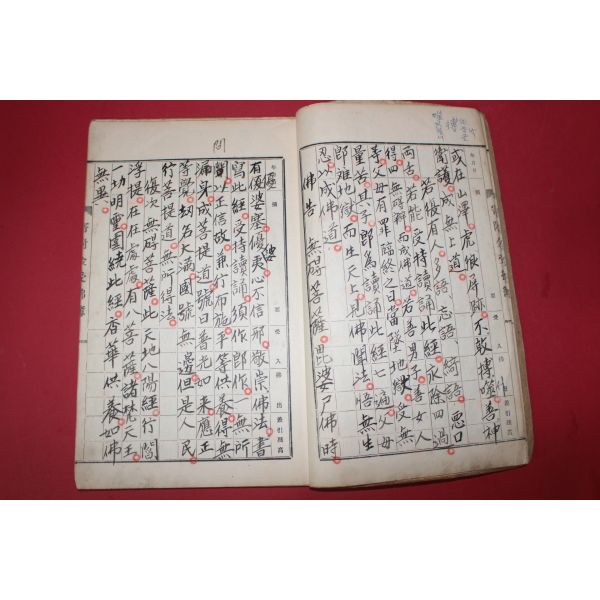 或在山澤虎狼屏跡不敢搏噬善神
衛護成無上道
若復有人多語忘語綺語惡口
兩舌若能受持讀誦此經永除四過
得四無碍辯而成佛道若善男子善女人
等父母有罪臨終之日當墜地獄受無
量苦其子即為讀誦此經七遍父母
即離地獄而生天上見佛聞法悟無生
忍以成佛道
佛告 無碍菩薩毗婆尸佛時
有優婆塞優婆夷心不信邪敬崇佛法書
寫此經受持讀誦須作即作一無所
問以正信故兼行布施平等供養得無
漏身成菩提道號曰普光如來應正
等覺劫名大滿國號無邊但是人民
行菩提道無所得法
復次無碍菩薩此天地八陽經行閻
浮提在在處處有八菩薩諸梵天王
一切明靈圍繞此經香華供養如佛
無異